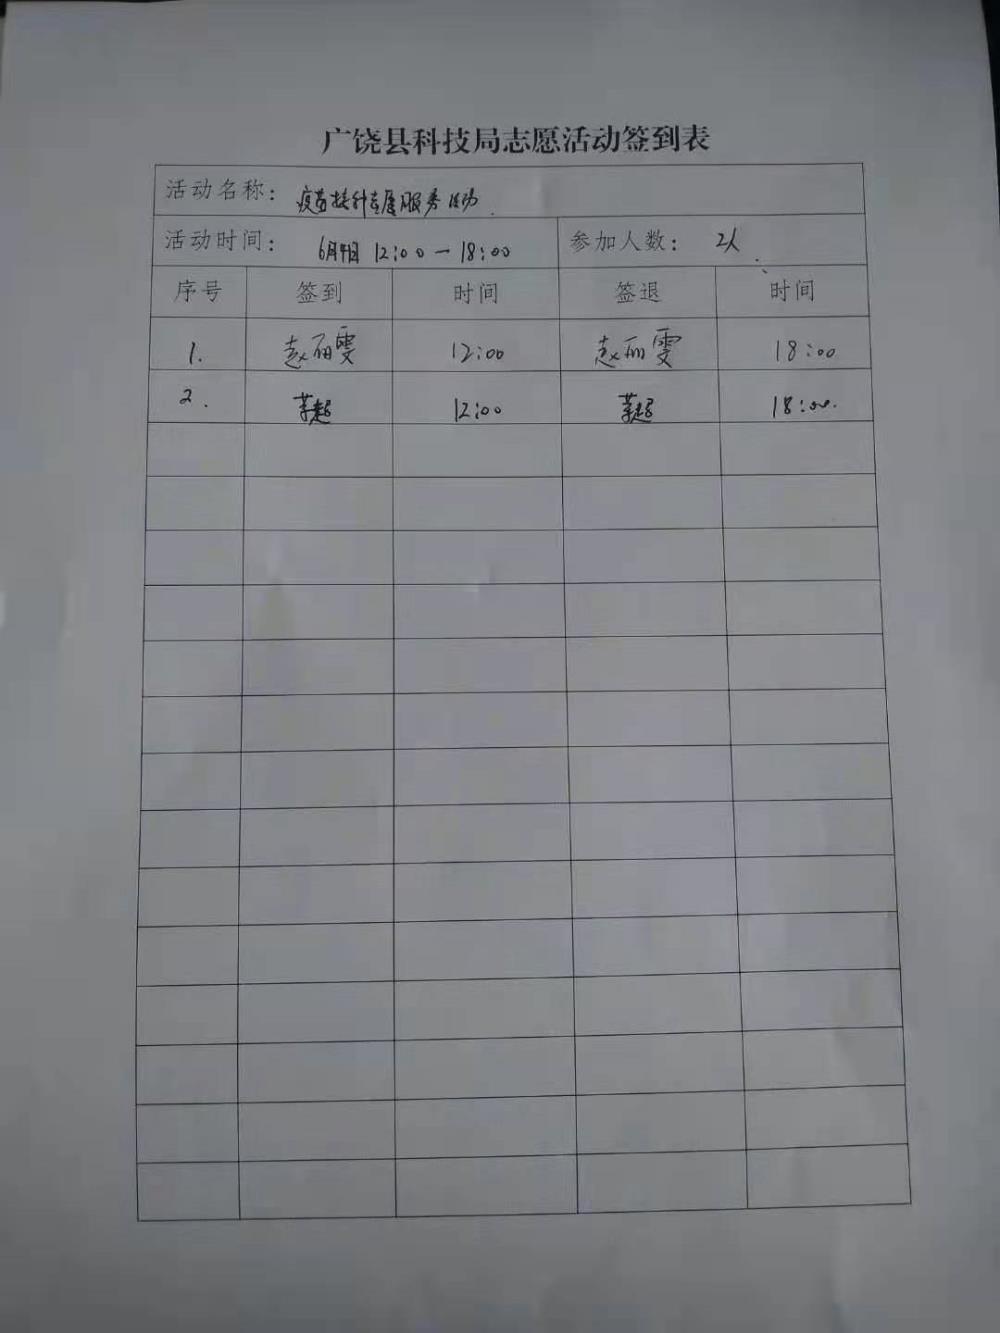 广饶县科技局志愿活动签到表
活动名称： 疫苗接种志愿服务活动
活动时间： 12:00 — 18:00 参加人数： 2人
序号 签到 时间 签退 时间
1. 赵丽雯 12:00 赵丽雯 18:00
2. 12:00 18:00.